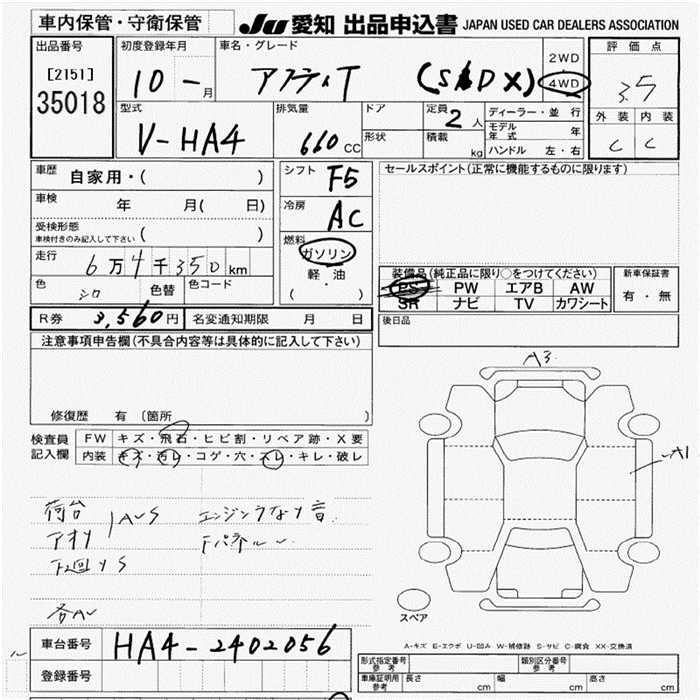 車内保管・守衛保管
JU 愛知 出品申込書 JAPAN USED CAR DEALERS ASSOCIATION
出品番号
[2151]
35018
初度登録年月
10 - 月
車名・グレード
アクティT (SDX)
2WD
4WD
評価点
3.5
外装 内装
C C
型式
V-HA4
排気量
660 CC
ドア
形状
定員 2 人
積載 kg
ディーラー・並行
モデル年式 年
ハンドル 左・右
車歴 自家用・( )
車検 年 月( 日)
受検形態 ( )
車検付きのみ記入して下さい
走行 6万4千350km
色 シロ 色替 色コード
シフト F5
冷房 AC
燃料
ガソリン
軽・油
( ・ )
セールスポイント(正常に機能するものに限ります)
装備品(純正品に限り○をつけてください)
PS PW エアB AW
SR ナビ TV カワシート
新車保証書
有・無
R券 3,560円 名変通知期限 月 日
後日品
注意事項申告欄(不具合内容等は具体的に記入して下さい)
修復歴 有 (箇所 )
検査員記入欄
FW キズ・飛石・ヒビ割・リペア跡・X要
内装 キズ・汚レ・コゲ・穴・スレ・キレ・破レ
荷台
アオリ
AUS
エンジンうなり音
下廻りS
各AU
A3
A1
スペア
車台番号 HA4-2402056
登録番号
A-キズ E-エクボ U-凹み W-補修跡 S-サビ C-腐食 XX-交換済
形式指定番号 参考
類別区分番号 参考
車庫証明用 参考 長さ cm 幅 cm 高さ cm